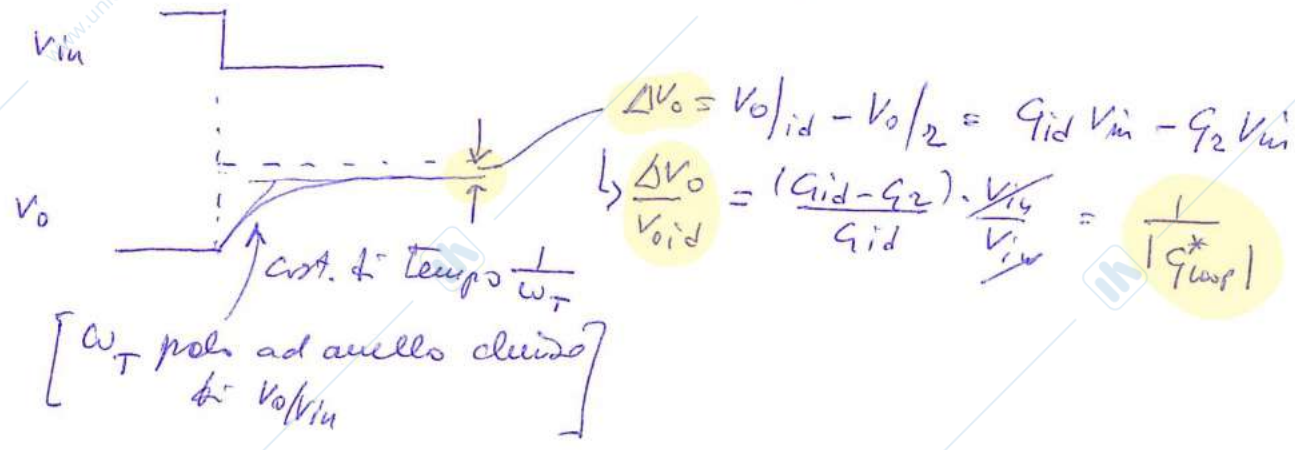 Vin
ΔVo = Vo/id - Vo/r = Gid Vin - Gr Vin
↳ ΔVo/Void = (Gid - Gr)/Gid · Vin/Vin = 1/|G*loop|
Vo
cost. di tempo 1/ωT
[ωT polo ad anello chiuso
di Vo/Vin]